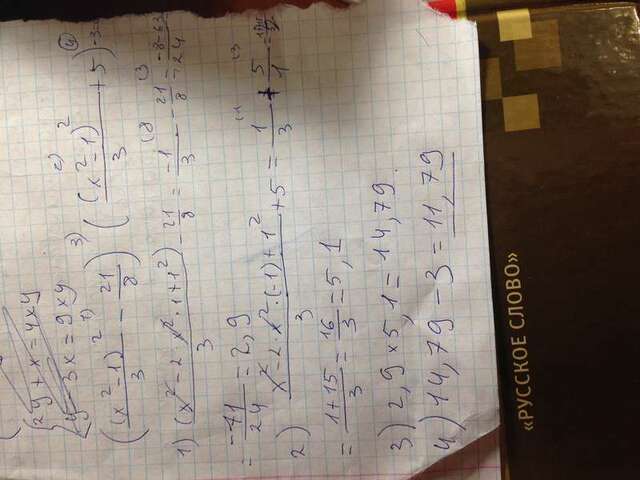 {2y + x = 4xy
{y - 3x = 9xy
1) 3) 2) 4)
((x²-1)²/3 - 21/8) ((x²-1)²/3 + 5) - 3
1) (x² - 2·x²·1 + 1²)/3 - 21/8 = -1/3 - 21/8 = -8-63/24
= -71/24 = 2,9
2) x² - 2·x²·(-1) + 1²/3 + 5 = 1/3 + 5/1 =
= 1+15/3 = 16/3 = 5,1
3) 2,9 x 5,1 = 14,79
4) 14,79 - 3 = 11,79
«РУССКОЕ СЛОВО»